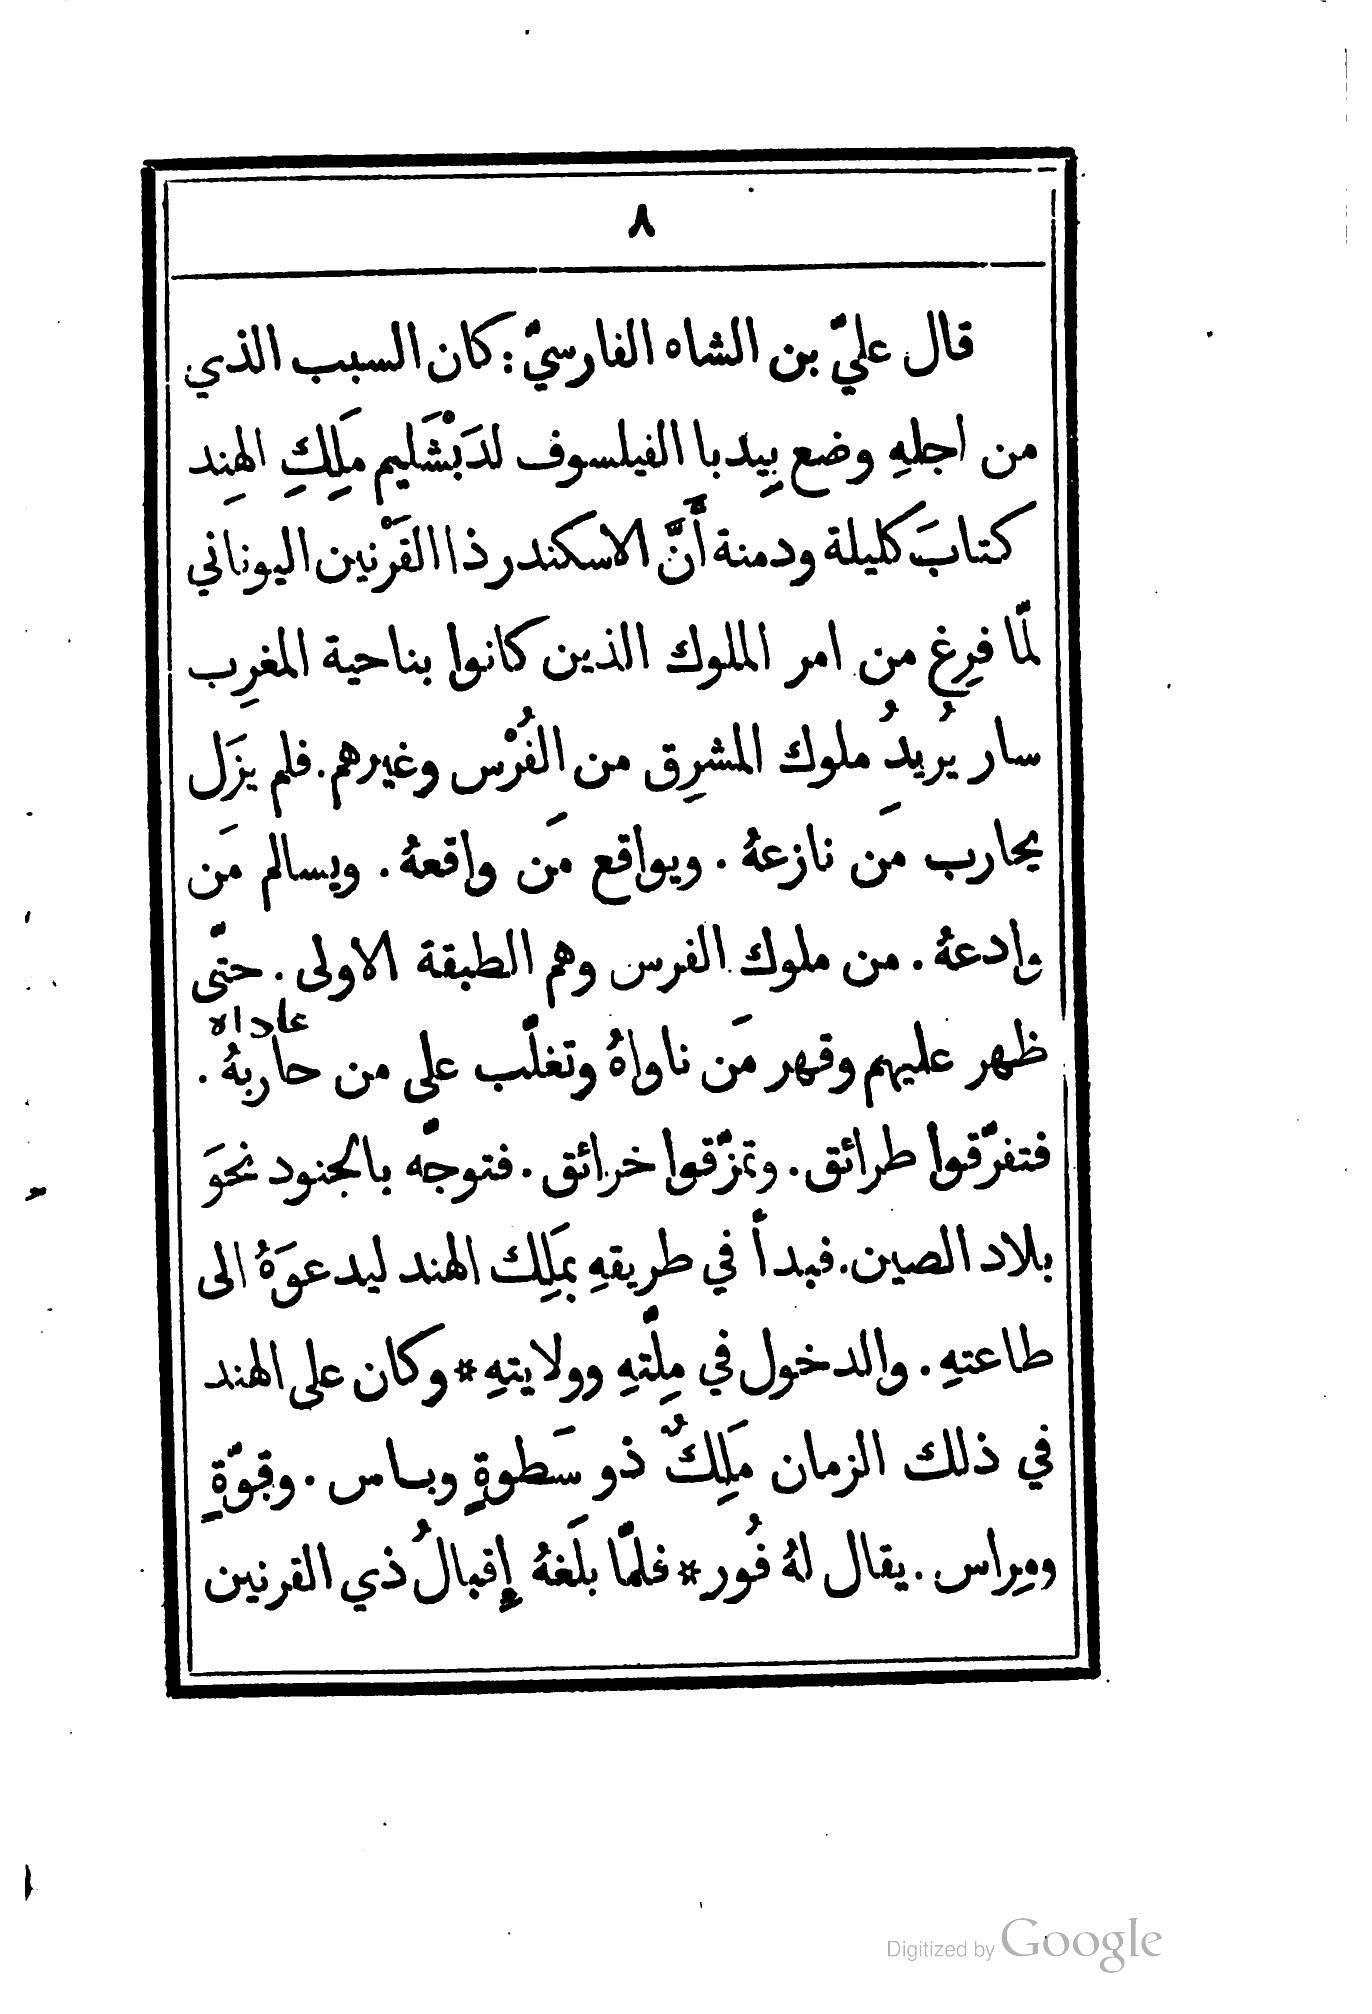 ٨
قال عليّ بن الشاه الفارسيّ : كان السبب الذي
من اجلهِ وضع بِيدبا الفيلسوف لدَبْشَليم مَلِكِ الهِند
كتابَ كليلة ودمنة أَنَّ الاسكندر ذا القَرْنين اليوناني
لمّا فرغ من امر الملوك الذين كانوا بناحية المغرِب
سار يُريدُ ملوك المشرِق من الفُرْس وغيرهم . فلم يزَل
يحارب مَن نازعهُ . ويواقع مَن واقعهُ . ويسالم مَن
وادعهُ . من ملوك الفرس وهم الطبقة الاولى . حتّى
عاداه
ظهر عليهم وقهر مَن ناواهُ وتغلّب على من حاربهُ .
فتفرّقوا طرائق . وتمزّقوا خرائق . فتوجّه بالجنود نحوَ
بلاد الصين . فبدأ في طريقهِ بمَلِك الهند ليدعوَهُ الى
طاعتهِ . والدخول في مِلّتهِ وولايتهِ * وكان على الهند
في ذلك الزمان مَلِكٌ ذو سَطوةٍ وباس . وقوّةٍ
ومِراس . يقال لهُ فُور * فلمّا بلَغهُ إِقبالُ ذي القرنين
Digitized by Google